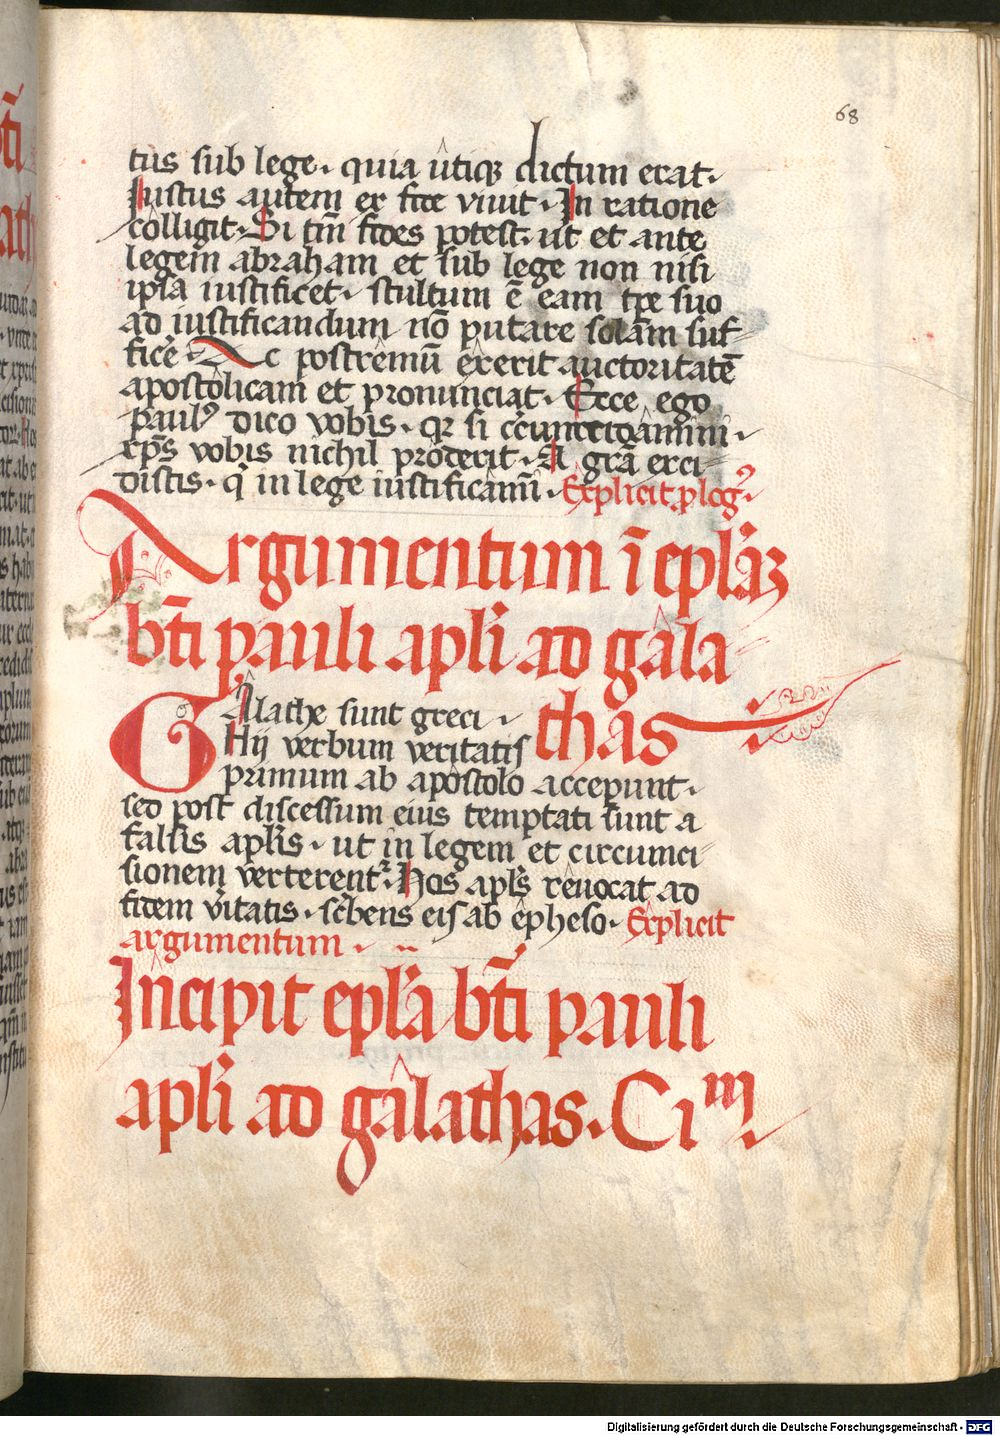 68
tus sub lege. quia utiqꝫ dictum erat.
Iustus autem ex fide viuit. In ratione
colligit. Si tm̄ fides potest. ut et ante
legem abraham et sub lege non nisi
ipsa iustificet. stultum ē eam tꝑe suo
ad iustificandum nō putare solam suf-
ficē Ac postremū exerit auctoritatē
apostolicam et pronunciat. Ecce ego
paulꝰ dico vobis. qꝛ si
xp̄s vobis nichil proderit. A gr̄a exci
distis. q̇ in lege iustificāmī. Explicit ꝓlogꝰ.
Argumentum ī epl̄aꝫ
bt̄i pauli apl̄i ad gala
thas
Galathe sunt greci.
Hij verbum veritatis
primum ab apostolo accepunt.
sed post discessum eius temptati sunt a
falsis apl̄is. ut in legem et circumci
sionem verterent᷑. Hos apl̄s reuocat ad
fidem v̄itatis. sc̄bens eis ab epheso. Explicit
argumentum.
Incipit epl̄a bt̄i pauli
apl̄i ad galathas. Cim
Digitalisierung gefördert durch die Deutsche Forschungsgemeinschaft - DFG